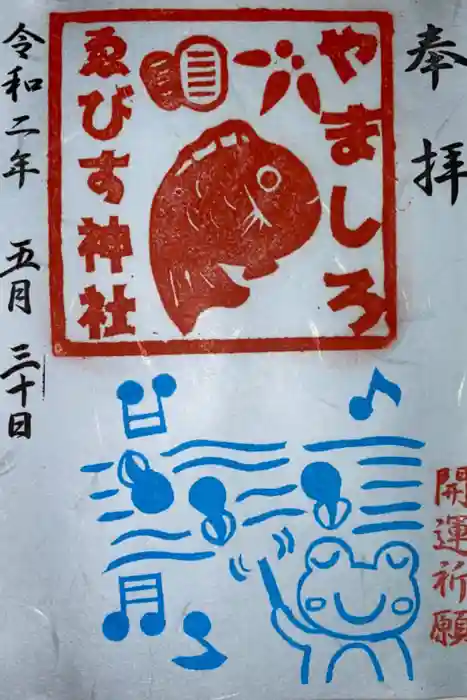 奉拝
やましろ
ゑびす神社
令和二年 五月 三十日
開運祈願